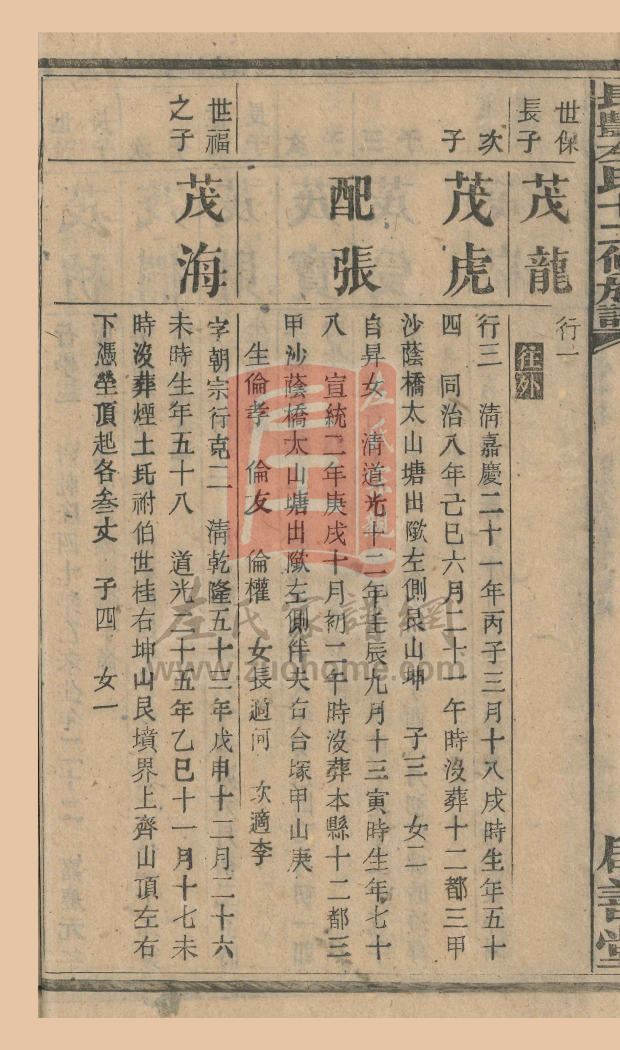 長豐左氏十二修族譜
居善堂
世保
長子
茂龍
行一
往外
次
子
茂虎
行三 清嘉慶二十一年丙子三月十八戌時生年五十
四 同治八年己巳六月二十一午時沒葬十二都三甲
沙蔭橋太山塘出歐左側艮山坤 子三 女二
配張
自昇女 清道光十二年壬辰九月十三寅時生年七十
八 宣統二年庚戌十月初二午時沒葬本縣十二都三
甲沙蔭橋太山塘出歐左側伴夫右合塚甲山庚
生倫孝 倫友 倫權 女長適何 次適李
世福
之子
茂海
字朝宗行克二 清乾隆五十三年戊申十二月二十六
未時生年五十八 道光二十五年乙巳十一月十七未
時沒葬煙土坵祔伯世桂右坤山艮墳界上齊山頂左右
下憑塋頂起各叁丈 子四 女一
左氏家譜網
www.zuohome.com